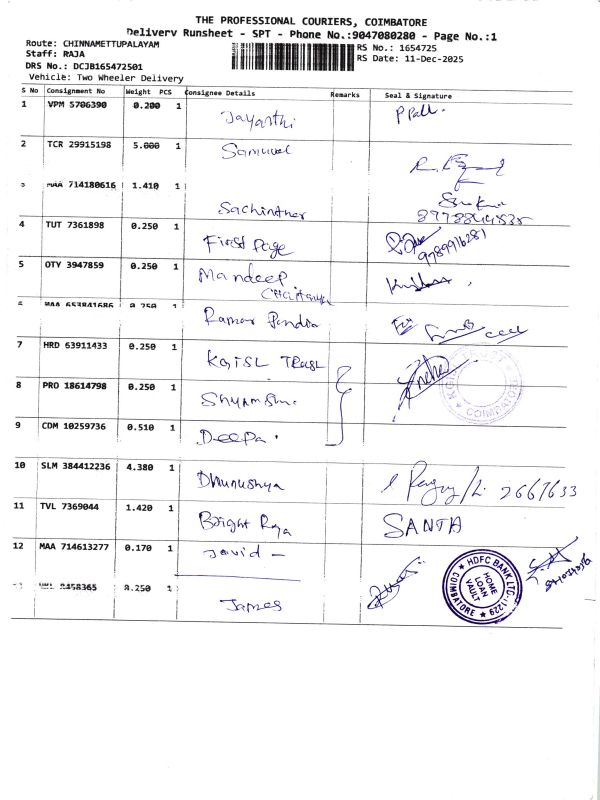 THE PROFESSIONAL COURIERS, COIMBATORE
Delivery Runsheet - SPT - Phone No.:9047080280 - Page No.:1
Route: CHINNAMETTUPALAYAM
RS No.: 1654725
Staff: RAJA
RS Date: 11-Dec-2025
DRS No.: DCJB165472501
Vehicle: Two Wheeler Delivery
S No Consignment No Weight PCS Consignee Details Remarks Seal & Signature
1 VPM 5706390 0.200 1 Jayanthi
2 TCR 29915198 5.000 1 Samuvel
3 MAA 714180616 1.410 1 Sachinther
4 TUT 7361898 0.250 1 First Page 9789916281
5 OTY 3947859 0.250 1 Mandeep
Chaitanya
6 MAA 653841686 0.250 1 Raman Pandia
7 HRD 63911433 0.250 1 KGISL TRUST
8 PRO 18614798 0.250 1
COIMBATORE
9 CDM 10259736 0.510 1 Deepa.
10 SLM 384412236 4.380 1 Dhanushya 2667633
11 TVL 7369044 1.420 1 Bright Raja SANTA
12 MAA 714613277 0.170 1 David -
HDFC BANK LTD.-1229
HOME LOAN VAULT
COIMBATORE
8458365 0.250 1 James